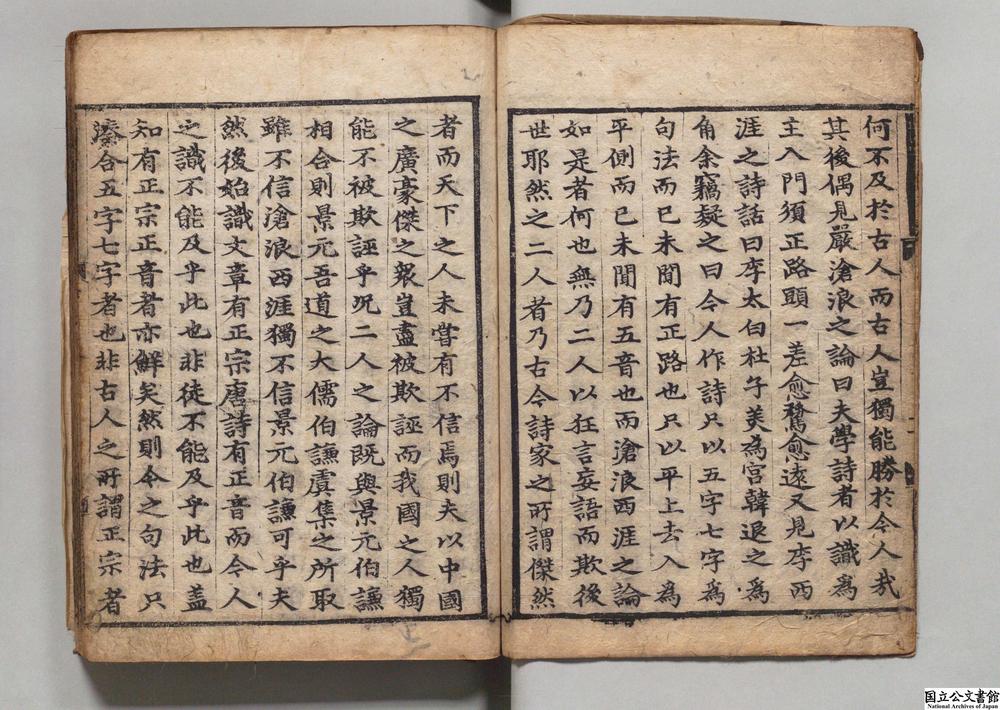 何不及於古人而古人豈獨能勝於今人哉
其後偶見嚴滄浪之論曰夫學詩者以識為
主入門須正路頭一差愈騖愈遠又見李西
涯之詩話曰李太白杜子美為宮韓退之為
角余竊疑之曰今人作詩只以五字七字為
句法而已未聞有正路也只以平上去入為
平側而已未聞有五音也而滄浪西涯之論
如是者何也無乃二人以狂言妄語而欺後
世耶然之二人者乃古今詩家之所謂傑然
者而天下之人未嘗有不信焉則夫以中國
之廣豪傑之衆豈盡被欺誣而我國之人獨
能不被欺誣乎況二人之論既與景元伯謙
相合則景元吾道之大儒伯謙虞集之所取
雖不信滄浪西涯獨不信景元伯謙可乎夫
然後始識文章有正宗唐詩有正音而今人
之識不能及乎此也非徒不能及乎此也盖
知有正宗正音者亦鮮矣然則今之句法只
湊合五字七字者也非古人之所謂正宗者
国立公文書館
National Archives of Japan